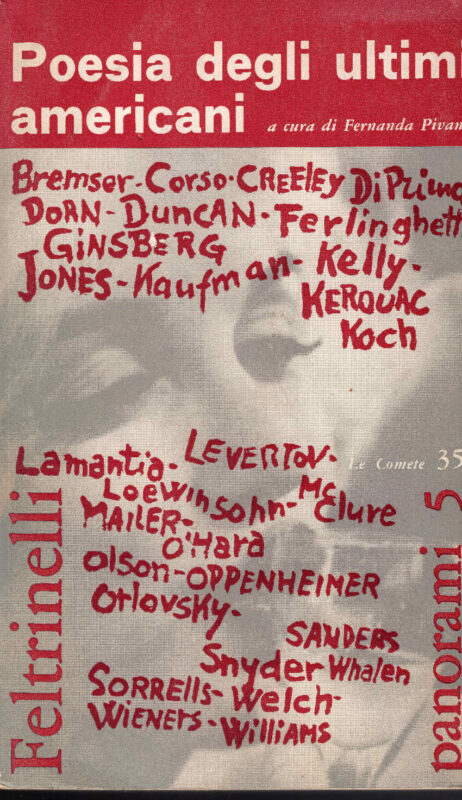 Poesia degli ultimi
americani
a cura di Fernanda Pivan
Bremser-Corso-CREELEY DiPrima
DORN-DUNCAN-Ferlinghetti
GINSBERG
JONES-Kaufman-Kelly-
KEROUAC
Koch
Lamantia-LEVERTOV-
Le Comete 35
Loewinsohn-McClure
MAILER-
O'Hara
Olson-OPPENHEIMER
Orlovsky-
SANDERS
Snyder Whalen
SORRELLS-Welch-
WIENERS-WILLIAMS
Feltrinelli
panorami 5